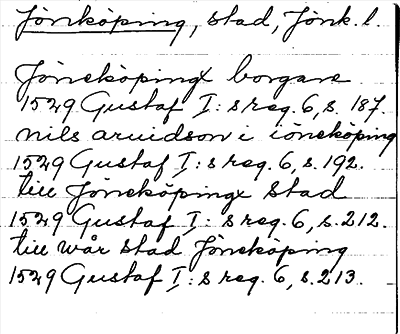 Jönköping, stad, Jönk. l.
Jöneköpingx borgare
1529 Gustaf I: s reg. 6, s. 187.
nils aruidson i iöneköping
1529 Gustaf I: s reg. 6, s. 192.
till Jöneköpingx Stad
1529 Gustaf I: s reg. 6, s. 212.
till wår stad Jöneköping
1529 Gustaf I: s reg. 6, s. 213.